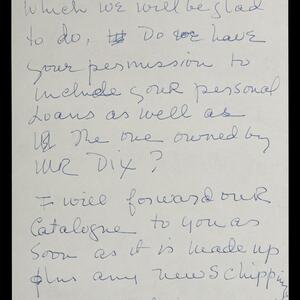 which we will be glad
to do. Do we have
your permission to
include your personal
Loans as well as
The one owned by
MR Dix?
I will forward our
Catalogue to you as
Soon as it is made up
plus any news clipping